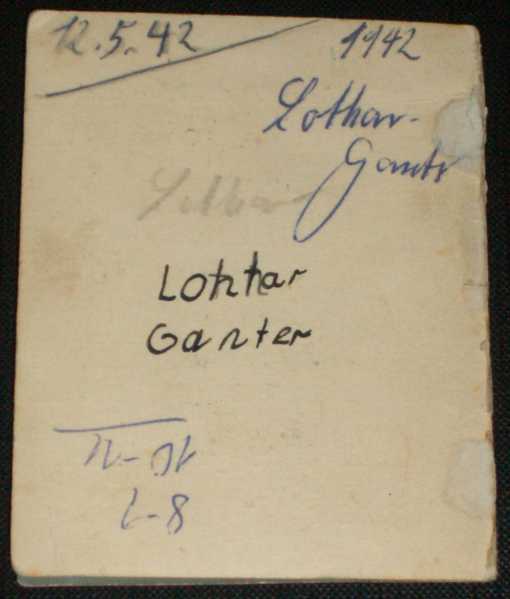 12.5.42
1942
Lothar
Ganter
Lothar
Lothar
Ganter